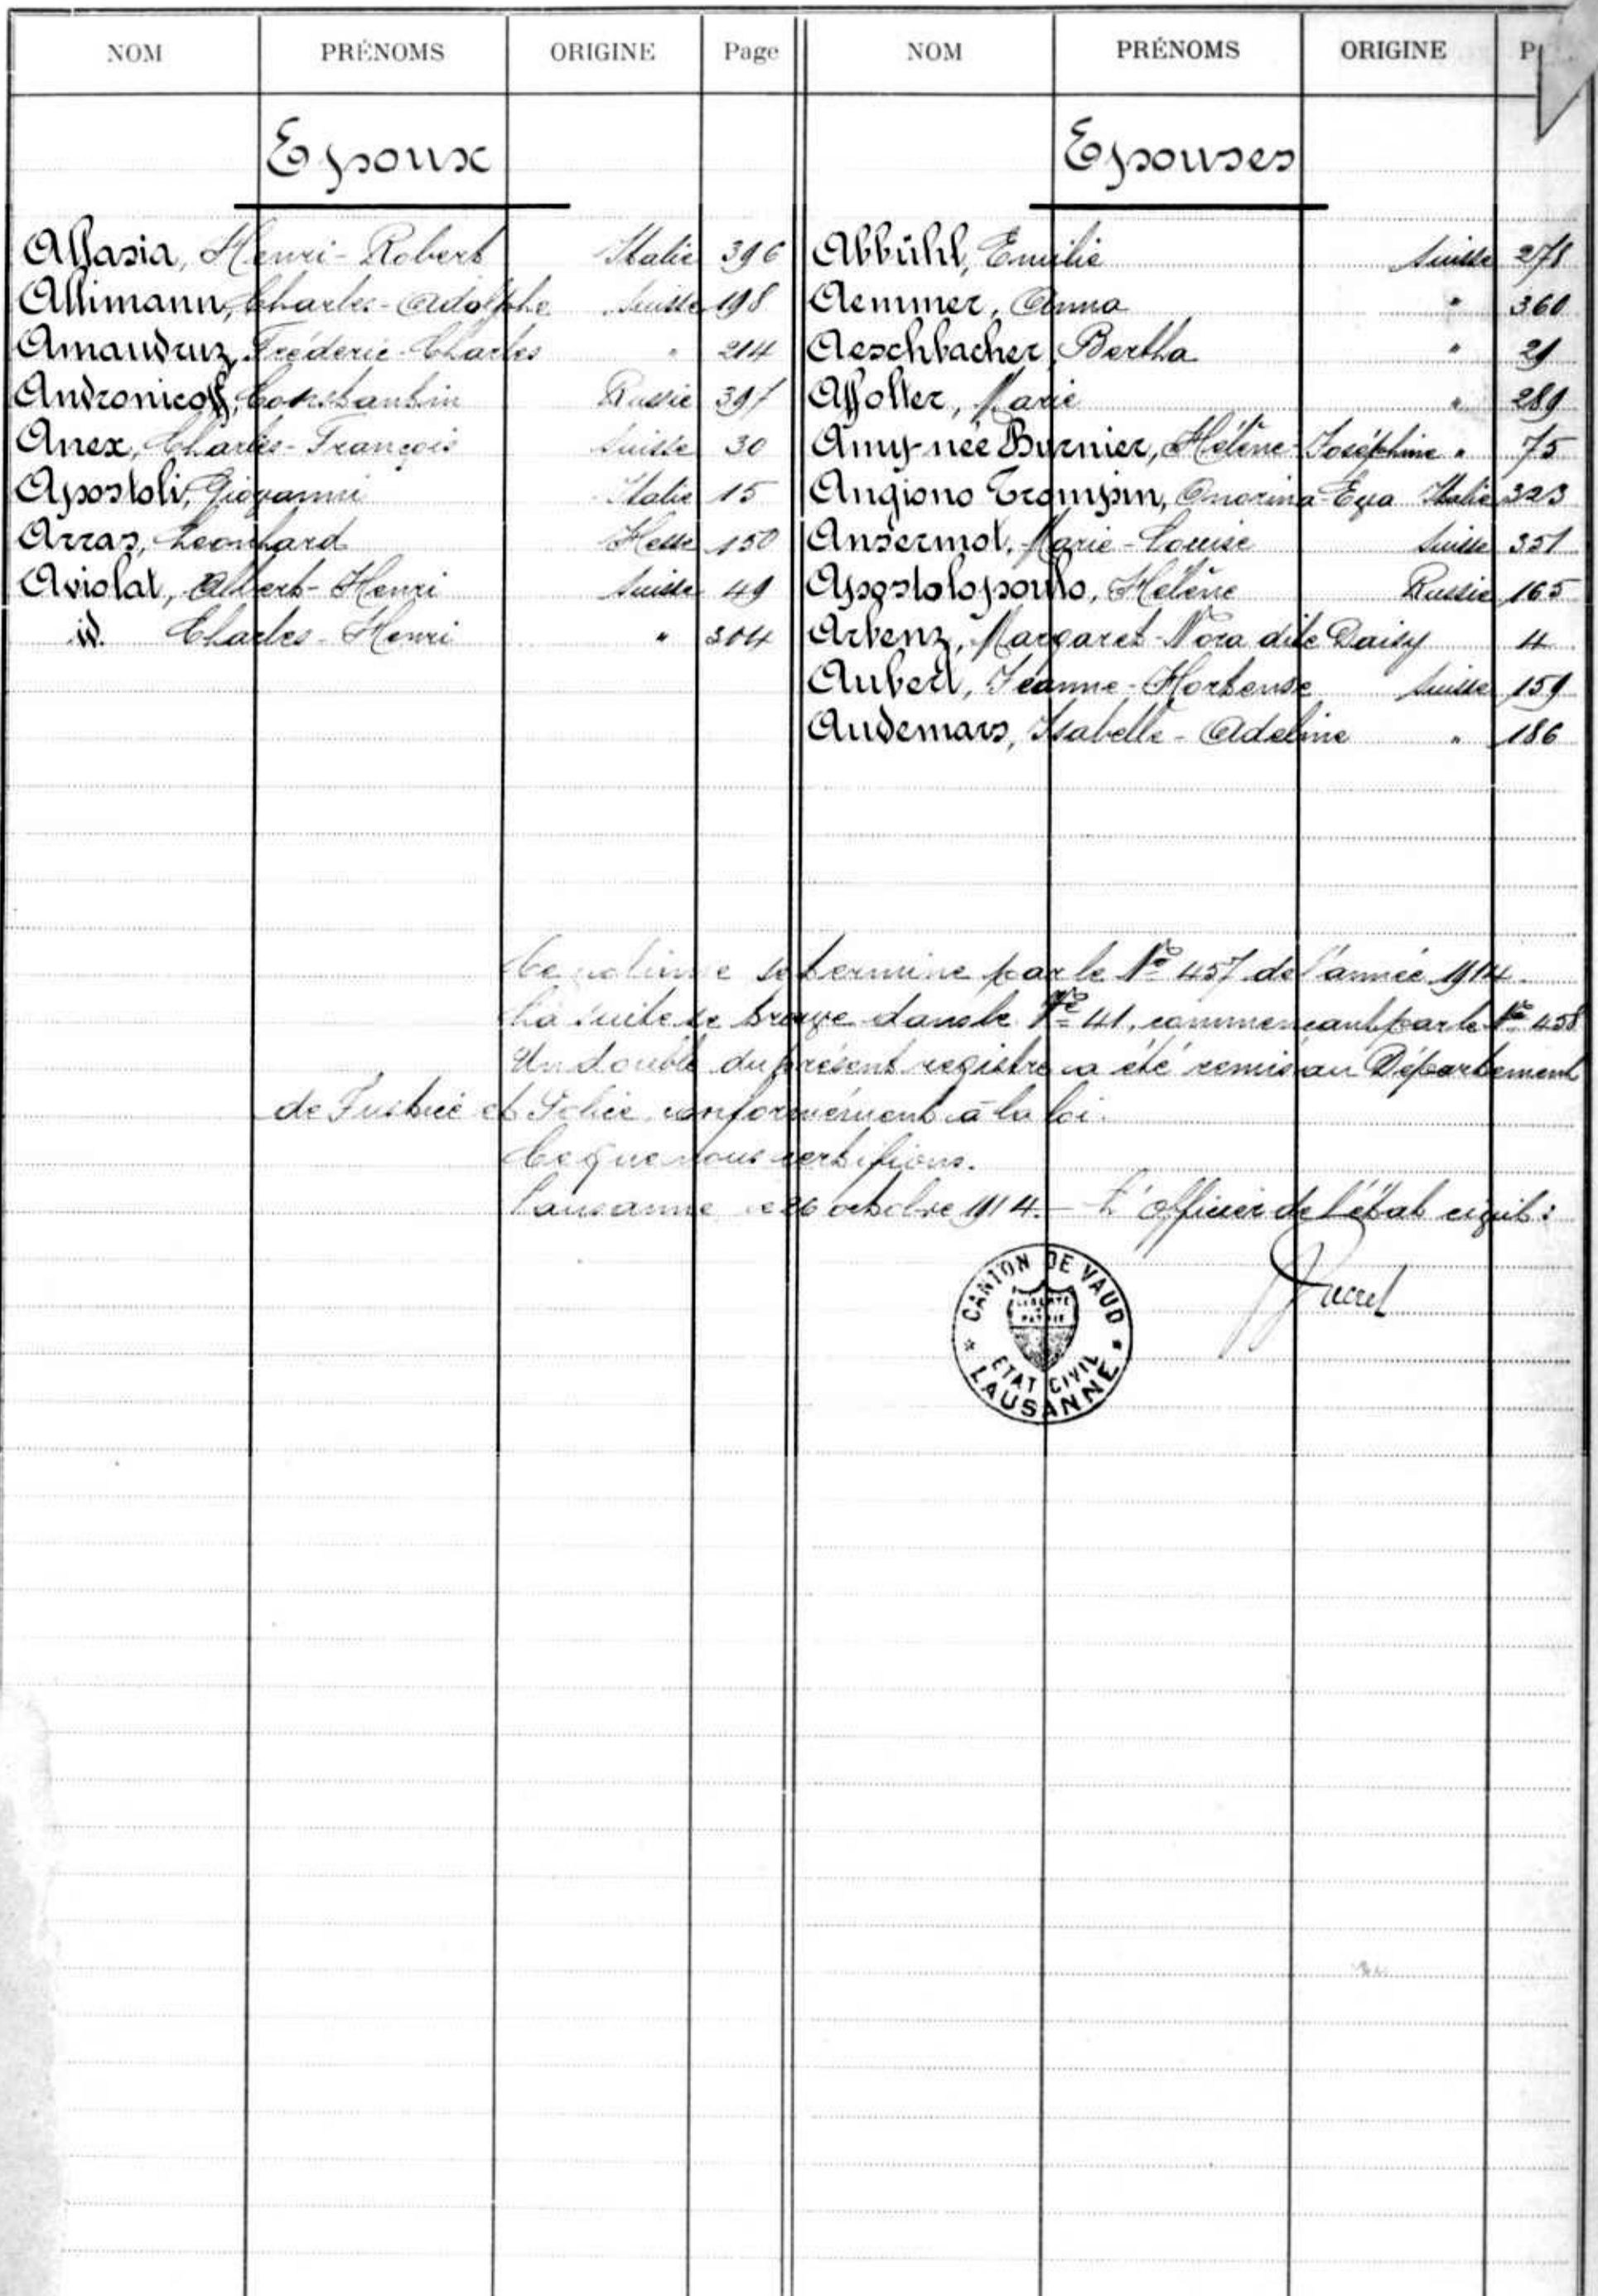 NOM PRÉNOMS ORIGINE Page NOM PRÉNOMS ORIGINE P
Epoux
Allasia, Henri-Robert Italie 396
Allimann, Charles-Adolphe Suisse 198
Amaudruz, Fréderic-Charles " 214
Andronicoff, Constantin Russie 397
Anex, Charles-François Suisse 30
Apostoli, Giovanni Italie 15
Arras, Leonhard Hesse 150
Aviolat, Albert-Henri Suisse 49
id. Charles-Henri " 304
Epouses
Abbühl, Emilie Suisse 278
Aemmer, Anna " 360
Aeschbacher, Bertha " 21
Affolter, Marie " 289
Amy-née Burnier, Hélène-Joséphine " 75
Angiono Trompin, Onorina-Eva Italie 323
Ansermot, Marie-Louise Suisse 351
Apostolopoulo, Hélène Russie 165
Arbenz, Margaret-Nora dite Daisy 4
Aubert, Jeanne-Hortense Suisse 159
Audemars, Isabelle-Adeline " 186
Ce volume se termine par le No 457 de l'année 1914.
La suite se trouve dans le No 41, commençant par le No 458
Un double du présent registre a été remis au Département
de Justice et Police, conformément à la loi.
Ce que nous certifions.
Lausanne le 26 octobre 1914. — L'officier de l'état civil:
CANTON DE VAUD
LIBERTÉ ET PATRIE
ETAT CIVIL
LAUSANNE